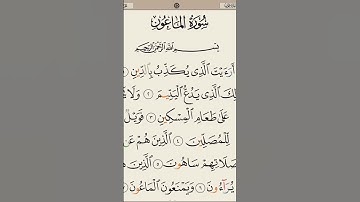 سُورَةُ المَاعُونَ
بِسْمِ اللَّهِ الرَّحْمَٰنِ الرَّحِيمِ
أَرَءَيْتَ ٱلَّذِى يُكَذِّبُ بِٱلدِّينِ ١
لِكَ ٱلَّذِى يَدُعُّ ٱلْيَتِيمَ ٢ وَلَا يَ
عَلَىٰ طَعَامِ ٱلْمِسْكِينِ ٣ فَوَيْلٌ
لِّلْمُصَلِّينَ ٤ ٱلَّذِينَ هُمْ عَن
صَلَاتِهِمْ سَاهُونَ ٥ ٱلَّذِينَ هُ
يُرَآءُونَ ٦ وَيَمْنَعُونَ ٱلْمَاعُونَ ٧